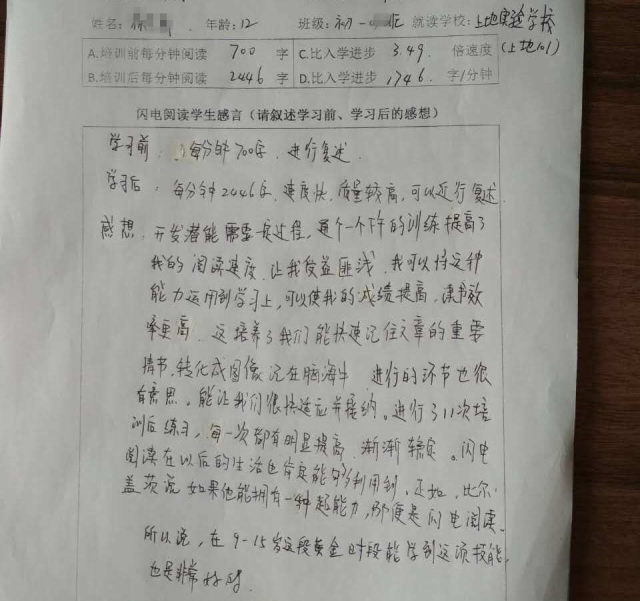 姓名: 徐 年龄:12 班级:初一 班 就读学校:上地实验学校
A.培训前每分钟阅读 700 字 C.比入学进步 3.49. 倍速度 (上地101)
B.培训后每分钟阅读 2446 字 D.比入学进步 1746. 字/分钟
闪电阅读学生感言(请叙述学习前、学习后的感想)
学习前: 每分钟700字,进行复述.
学习后: 每分钟2446字,速度快,质量较高,可以进行复述.
感想: 开发潜能需要一定过程,通个一个下午的训练提高了
我的阅读速度,让我受益匪浅,我可以将这种
能力运用到学习上,可以使我的成绩提高,读书效
率更高.这培养了我们能快速记住文章的重要
情节,转化成图像记在脑海中 进行的环节也很
有意思.能让我们很快适应并接纳。进行了11次培
训后练习,每一次都有明显提高,渐渐稳定。闪电
阅读在以后的生活也肯定能够利用到.正如,比尔·
盖茨说如果他能拥有一种超能力,那便是闪电阅读.
所以说,在9-15岁这段黄金时段能学到这项技能,
也是非常好的.